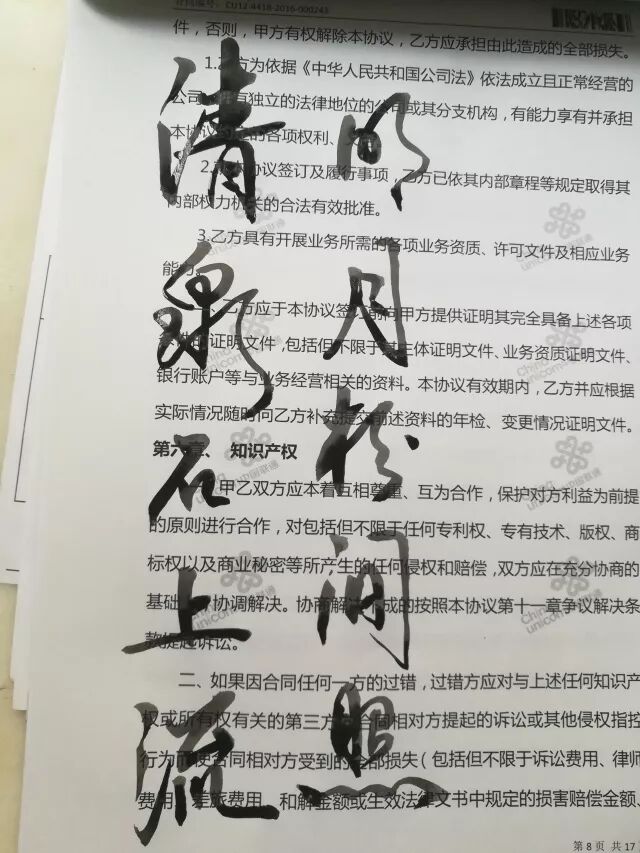 合同编号：CU12-4418-2016-000243
件，否则，甲方有权解除本协议，乙方应承担由此造成的全部损失。
1.乙方为依据《中华人民共和国公司法》依法成立且正常经营的
公司 有独立的法律地位的公司或其分支机构，有能力享有并承担
本协议 定的各项权利、义
2. 本协议签订及履行事项，乙方已依其内部章程等规定取得其
内部权力机关的合法有效批准。
3.乙方具有开展业务所需的各项业务资质、许可文件及相应业务
能力
乙方应于本协议签 前向甲方提供证明其完全具备上述各项
条件的证明文件，包括但不限于其主体证明文件、业务资质证明文件、
银行账户等与业务经营相关的资料。本协议有效期内，乙方并应根据
实际情况随时向乙方补充提交前述资料的年检、变更情况证明文件。
第六章、 知识产权
甲乙双方应本着互相尊重、互为合作，保护对方利益为前提
的原则进行合作，对包括但不限于任何专利权、专有技术、版权、商
标权以及商业秘密等所产生的任何侵权和赔偿，双方应在充分协商的
基础 协调解决。协商解决不成的按照本协议第十一章争议解决条
款提起诉讼。
二、如果因合同任何一方的过错，过错方应对与上述任何知识产
权或所有权有关的第三方 合同相对方提起的诉讼或其他侵权指控
行为而使合同相对方受到的全部损失（包括但不限于诉讼费用、律师
费用、差旅费用、和解金额或生效法律文书中规定的损害赔偿金额、
第 8 页 共 17
明月松间照
清泉石上流
China
unicom中国联通